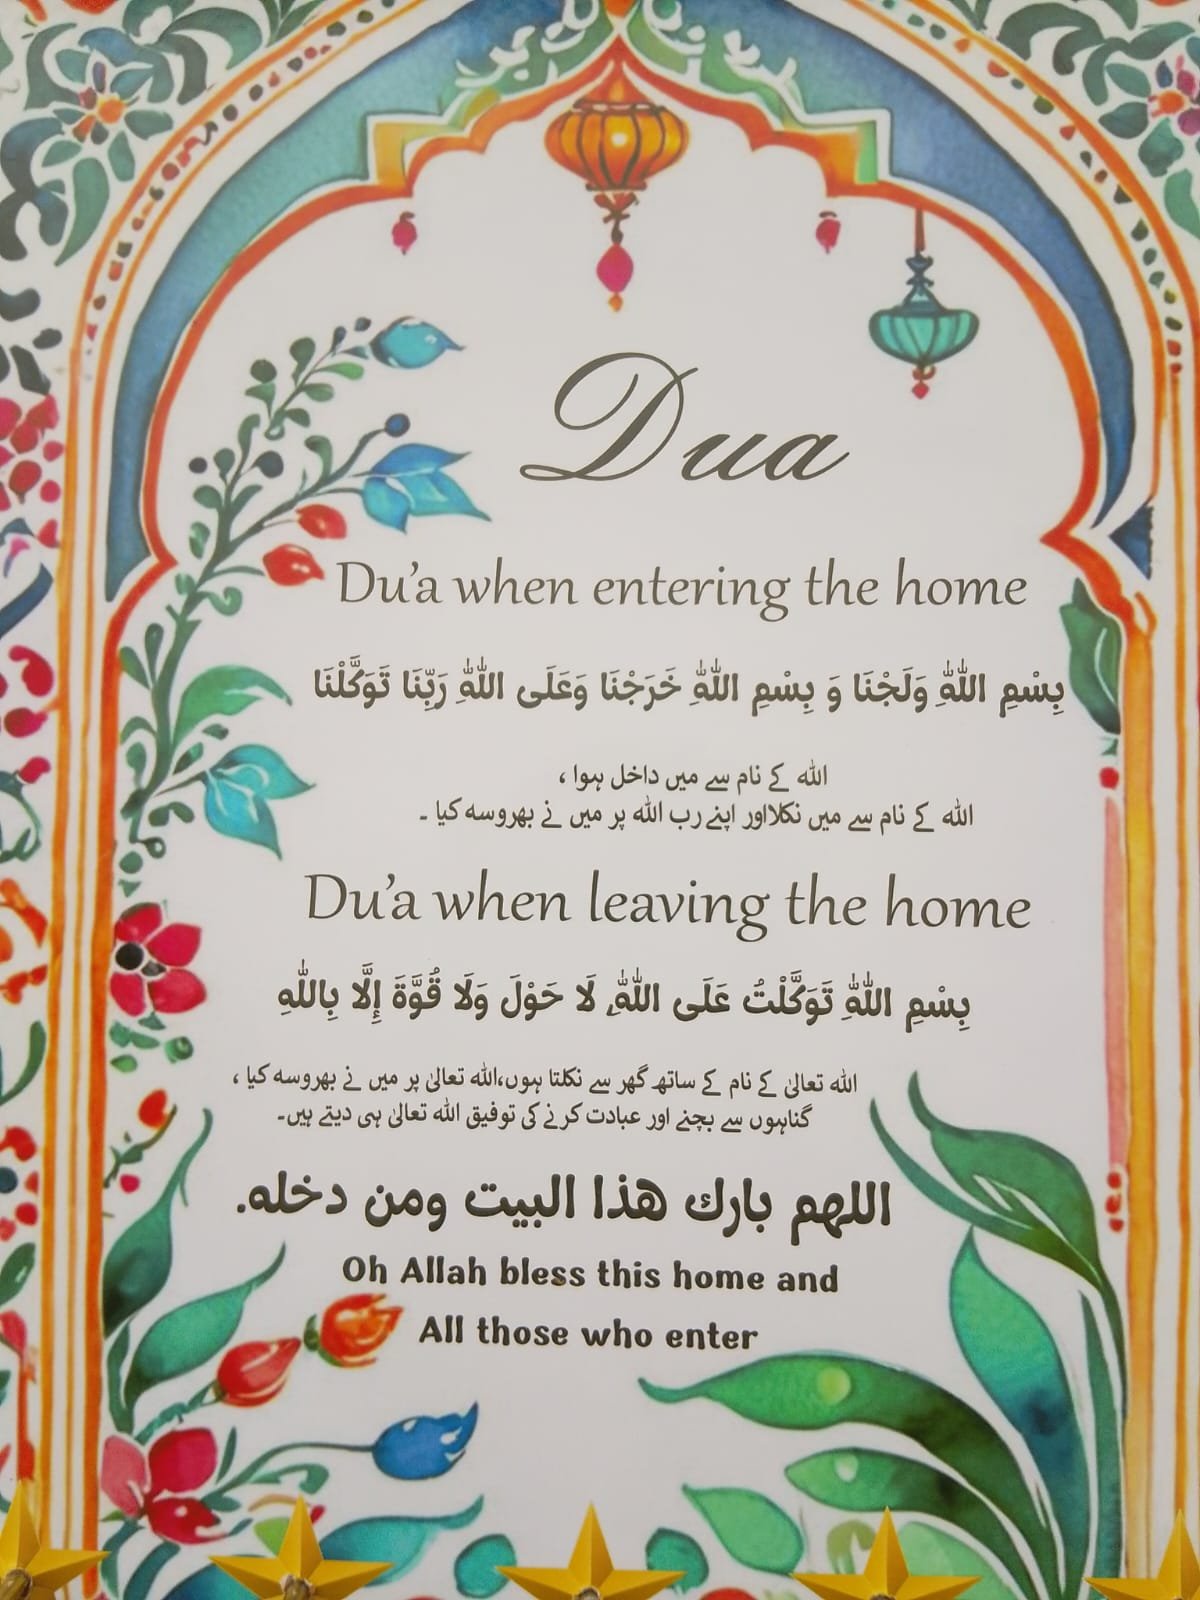 Dua
Du'a when entering the home
بِسْمِ اللّٰهِ وَلَجْنَا وَ بِسْمِ اللّٰهِ خَرَجْنَا وَعَلَى اللّٰهِ رَبِّنَا تَوَكَّلْنَا
اللہ کے نام سے میں داخل ہوا ،
اللہ کے نام سے میں نکلااور اپنے رب اللہ پر میں نے بھروسہ کیا ۔
Du'a when leaving the home
بِسْمِ اللّٰهِ تَوَكَّلْتُ عَلَى اللّٰهِ، لَا حَوْلَ وَلَا قُوَّةَ إِلَّا بِاللّٰهِ
اللہ تعالیٰ کے نام کے ساتھ گھر سے نکلتا ہوں،اللہ تعالیٰ پر میں نے بھروسہ کیا ،
گناہوں سے بچنے اور عبادت کرنے کی توفیق اللہ تعالیٰ ہی دیتے ہیں۔
اللهم بارك هذا البيت ومن دخله.
Oh Allah bless this home and
All those who enter